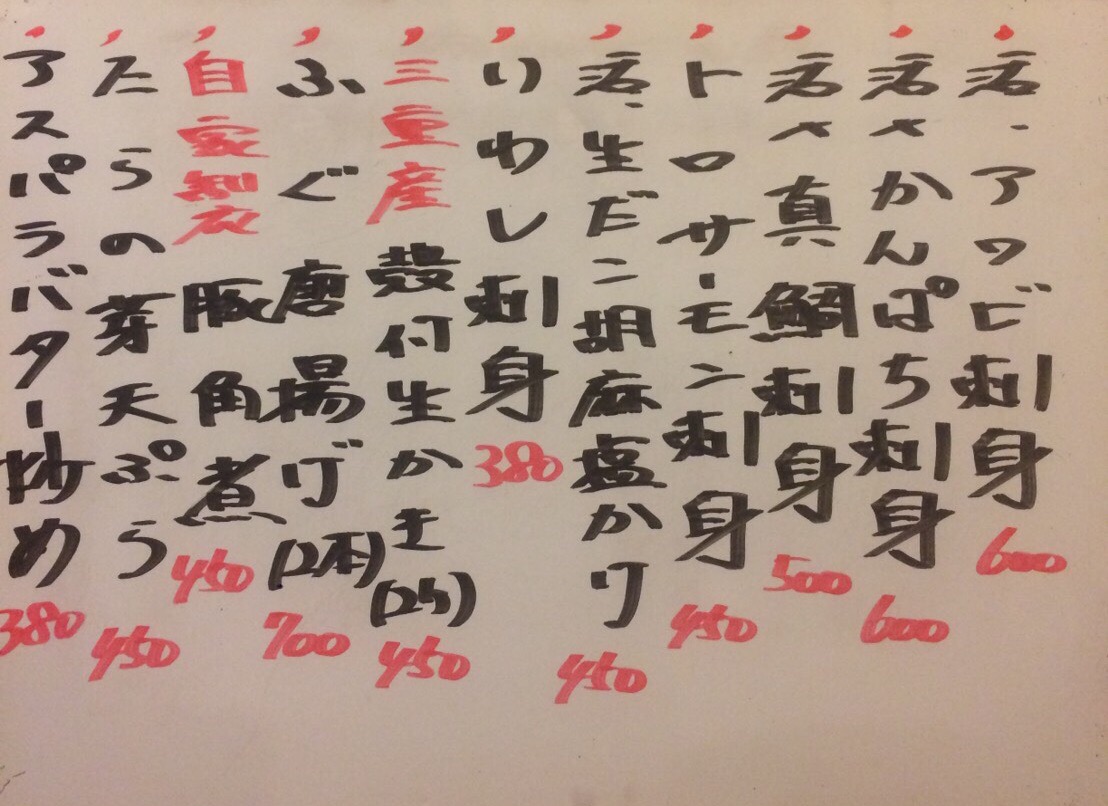 活、アワビ刺身 600
活〆かんぱち刺身 600
活〆真鯛刺身 500
トロサーモン刺身 450
活、生だこ胡麻塩かり 450
いわし刺身 380
三重産 殻付生かき(2ケ) 450
ふぐ唐揚げ(2本) 700
自家製 豚角煮 450
たらの芽天ぷら 450
アスパラバター炒め 380